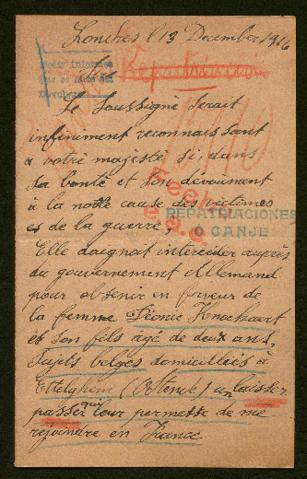 Londres le 13 Decembre 1916
Sire
Repatriacion
Le Soussigné serait
infiniment reconnaissant
a votre majesté si dans
sa bonté et son dévouement
à la noble cause des victimes
de la guerre,
REPATRIACIONES
O CANJE
Elle daignait intercéder auprès
du gouvernement Allemand
pour obtenir en faveur de
la femme
et son fils âgé de deux ans,
Sujets belges domiciliés à
(Ostende) un laisser
passer qui leur permette de me
rejoindre en France